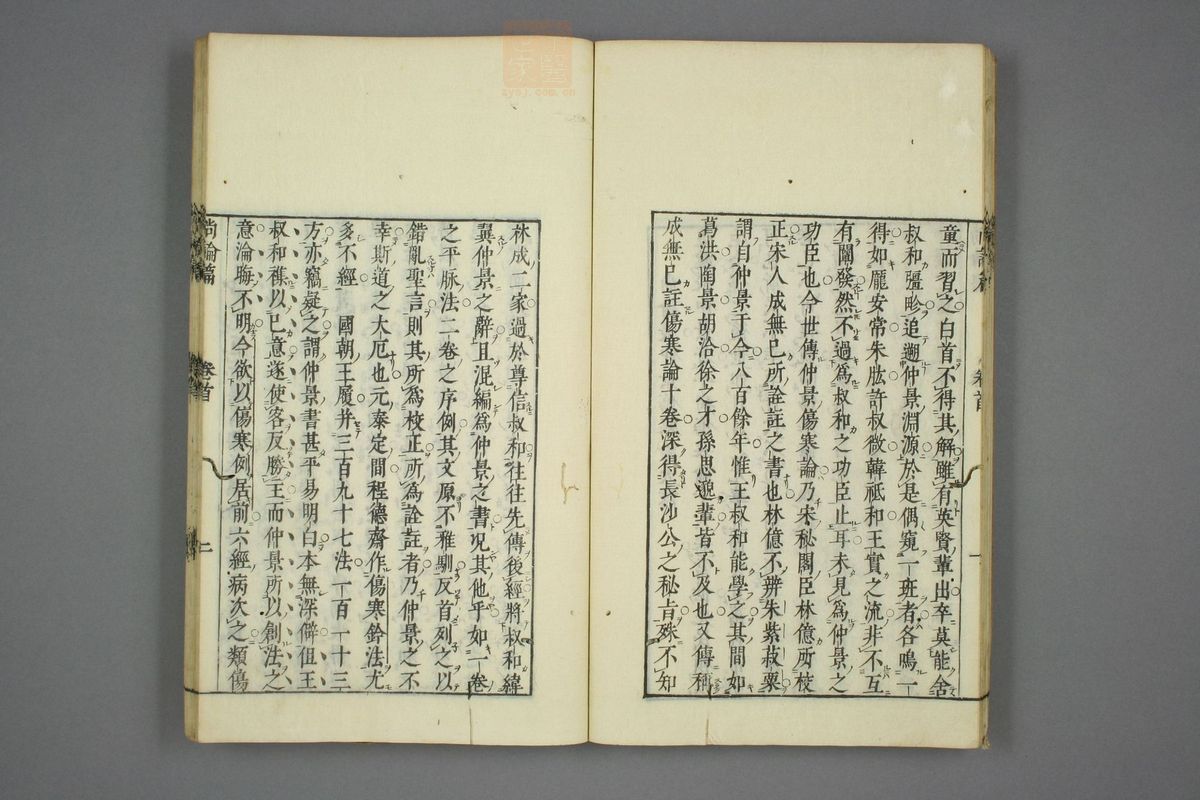 童而習之白首不得其解雖有英賢輩出卒莫能舍
叔和疆畛追遡仲景淵源於是偶窺一班者各鳴一
得如龐安常朱肱許叔微韓祗和王實之流非不互
有闡發然不過爲叔和之功臣止耳未見爲仲景之
功臣也今世傳仲景傷寒論乃宋秘閣臣林億所校
正宋人成無已所詮註之書也林億不辨朱紫菽粟
謂自仲景于今八百餘年惟王叔和能學之其間如
葛洪陶景胡洽徐之才孫思邈輩皆不及也又傳稱
成無已註傷寒論十卷深得長沙公之秘旨殊不知
林成二家過於尊信叔和往往先傳後經將叔和緯
翼仲景之辭且混編爲仲景之書况其他乎如一卷
之平脉法二卷之序例其文原不雅馴反首列之以
錯亂聖言則其所爲校正所爲詮註者乃仲景之不
幸斯道之大厄也元泰定間程德齋作傷寒鈐法尤
多不經 國朝王履并三百九十七法一百一十三
方亦竊疑之謂仲景書甚平易明白本無深僻伹王
叔和襍以已意遂使客反勝主而仲景所以創法之
意淪晦不明今欲以傷寒例居前六經病次之類傷
尚論篇 卷首 二
zysj.com.cn